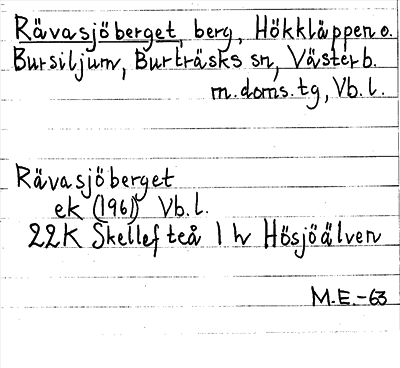 Rävasjöberget, berg, Hökkläppen o.
Bursiljum, Burträsks sn, Västerb.
m.doms.tg, Vb.l.
Rävasjöberget
ek (1961) Vb.l.
22K Skellefteå 1 h Hösjöälven
M.E.-63